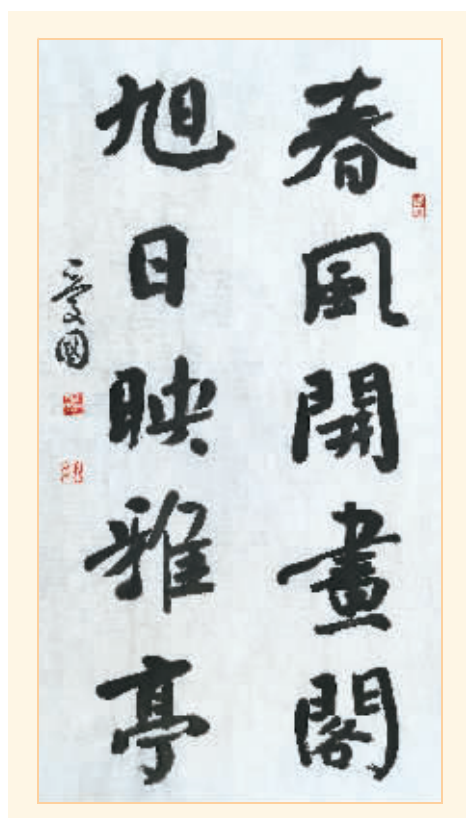 春風開畫閣
旭日映雅亭
愛國